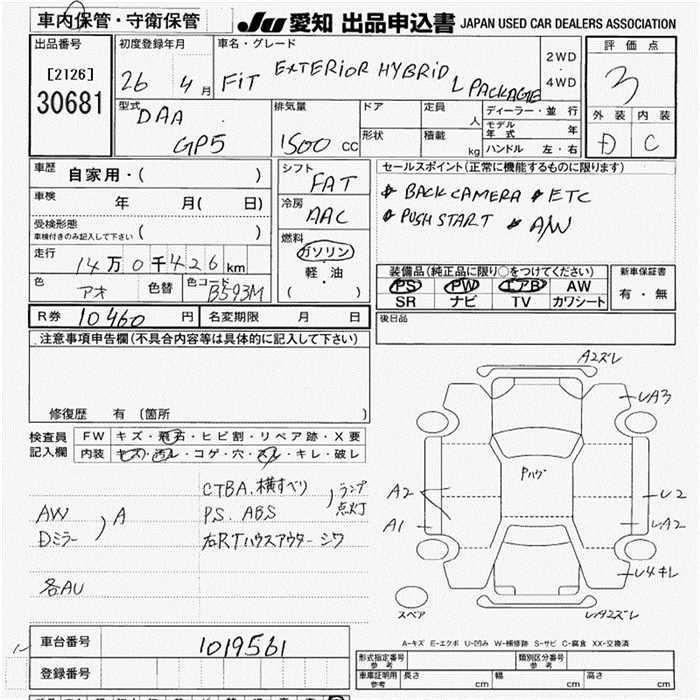 車内保管・守衛保管
JU 愛知 出品申込書 JAPAN USED CAR DEALERS ASSOCIATION
出品番号
[2126]
30681
初度登録年月
26 4 月
車名・グレード
FIT EXTERIOR HYBRID L PACKAGE
2WD
4WD
評価点
3
外装 内装
D C
型式
DAA
GP5
排気量
1500 cc
ドア
形状
定員
人
積載
kg
ディーラー・並行
モデル年式 年
ハンドル 左・右
車歴
自家用・( )
車検
年 月( 日)
受検形態
車検付きのみ記入して下さい ( )
走行
14万0千426km
色 アオ 色替 色コード B593M
シフト
FAT
冷房
AAC
燃料
ガソリン
軽・油
( )
セールスポイント(正常に機能するものに限ります)
BACK CAMERA ETC
PUSH START A/W
装備品(純正品に限り○をつけてください)
PS PW エアB AW
SR ナビ TV カワシート
新車保証書
有・無
R券 10460 円 名変期限 月 日
後日品
注意事項申告欄(不具合内容等は具体的に記入して下さい)
修復歴 有(箇所 )
検査員記入欄
FW キズ・飛石・ヒビ割・リペア跡・X要
内装 キズ・汚レ・コゲ・穴・スレ・キレ・破レ
CTBA.横すべり
P.S. ABS
ランプ点灯
右RTハウスアウターシワ
AW
Dミラー
A
各AU
A2ズレ
UA3
A2
A1
Pハゲ
U2
UA2
U4キレ
UA2ズレ
スペア
A-キズ E-エクボ U-凹み W-補修跡 S-サビ C-腐食 XX-交換済
車台番号 1019561
登録番号
形式指定番号 参考
類別区分番号 参考
車庫証明用 参考 長さ cm 幅 cm 高さ cm